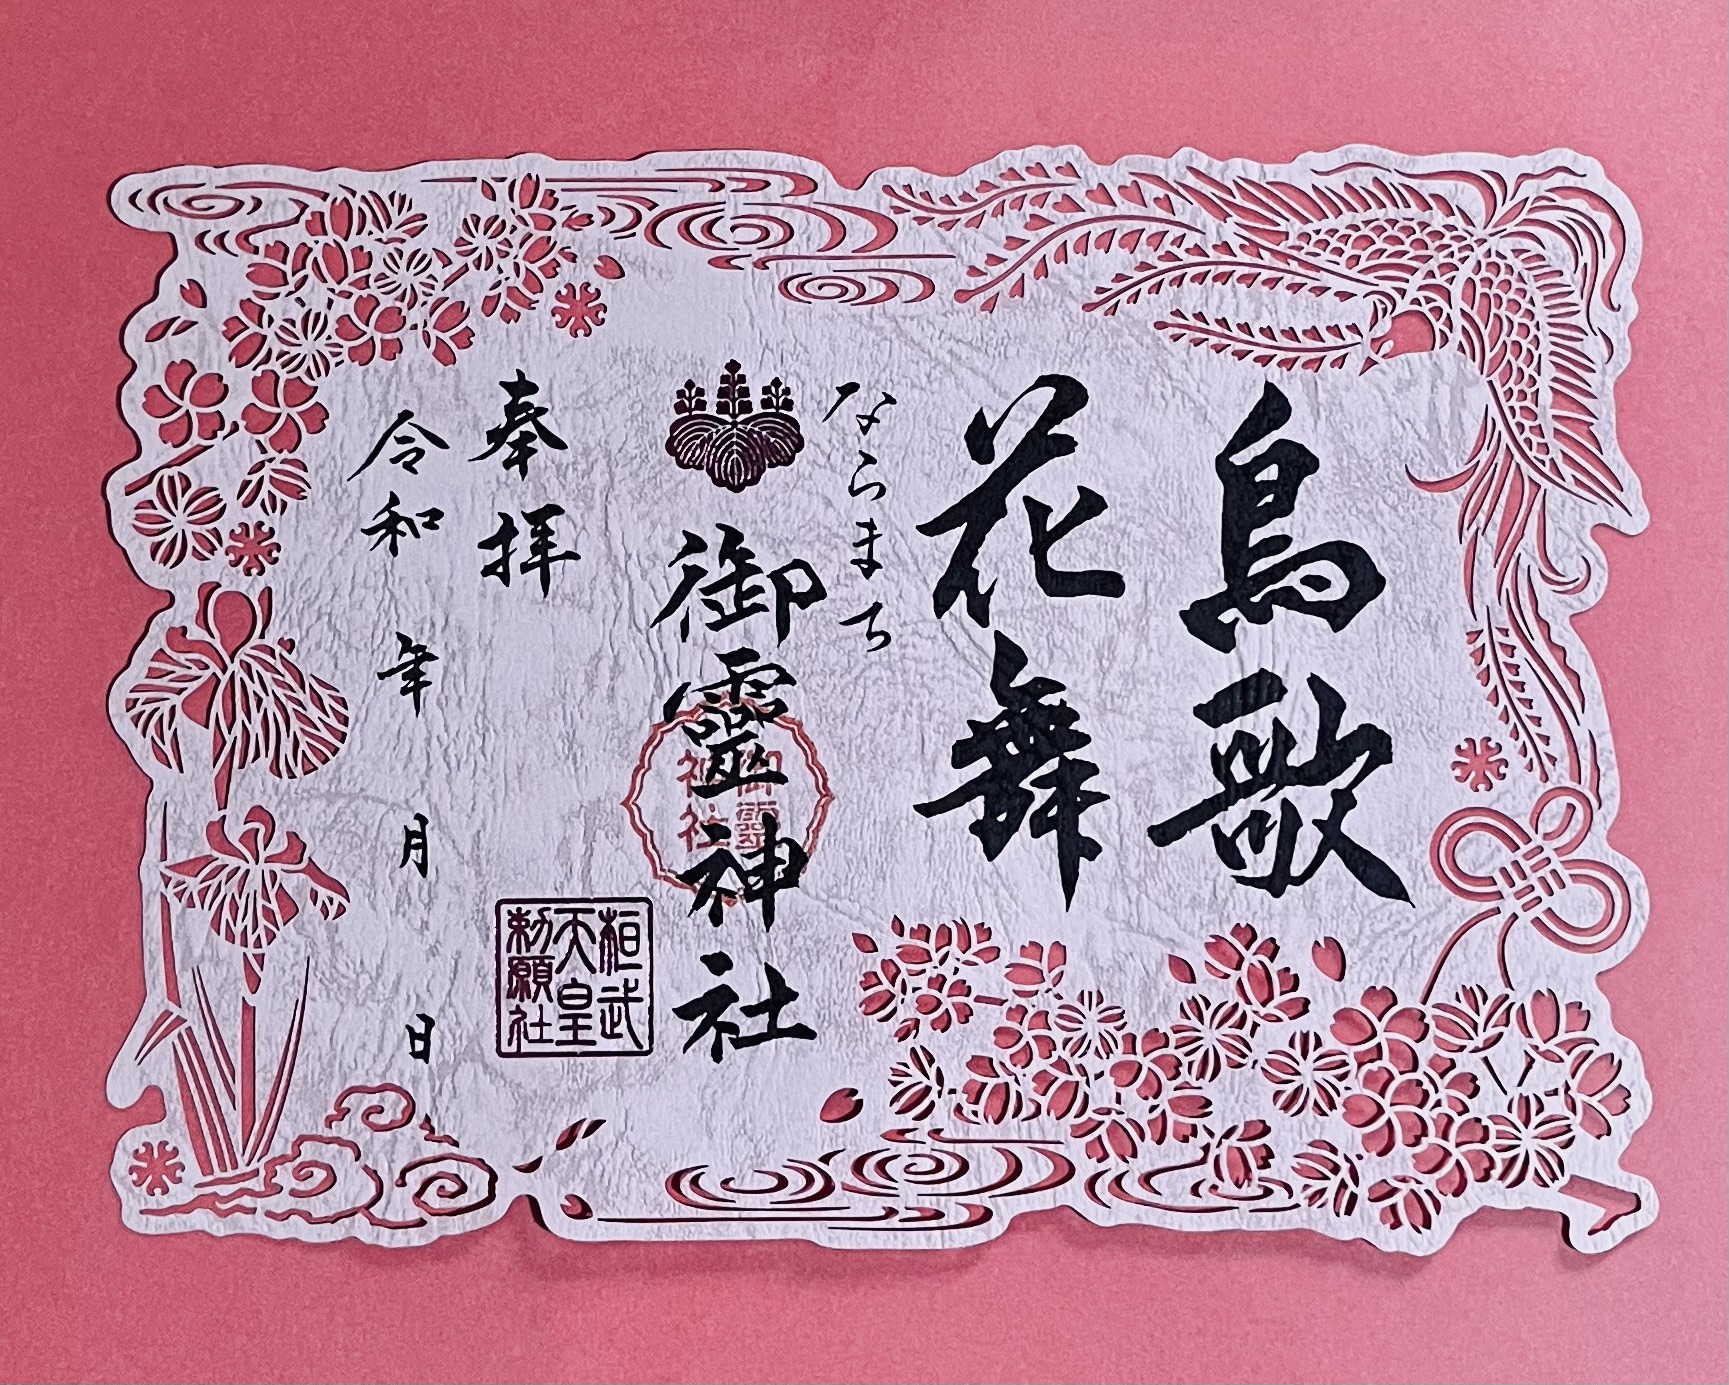 鳥歌
花舞
ならまち
御霊神社
御靈
神社
桓武
天皇
勅願社
奉拝
令和 年 月 日